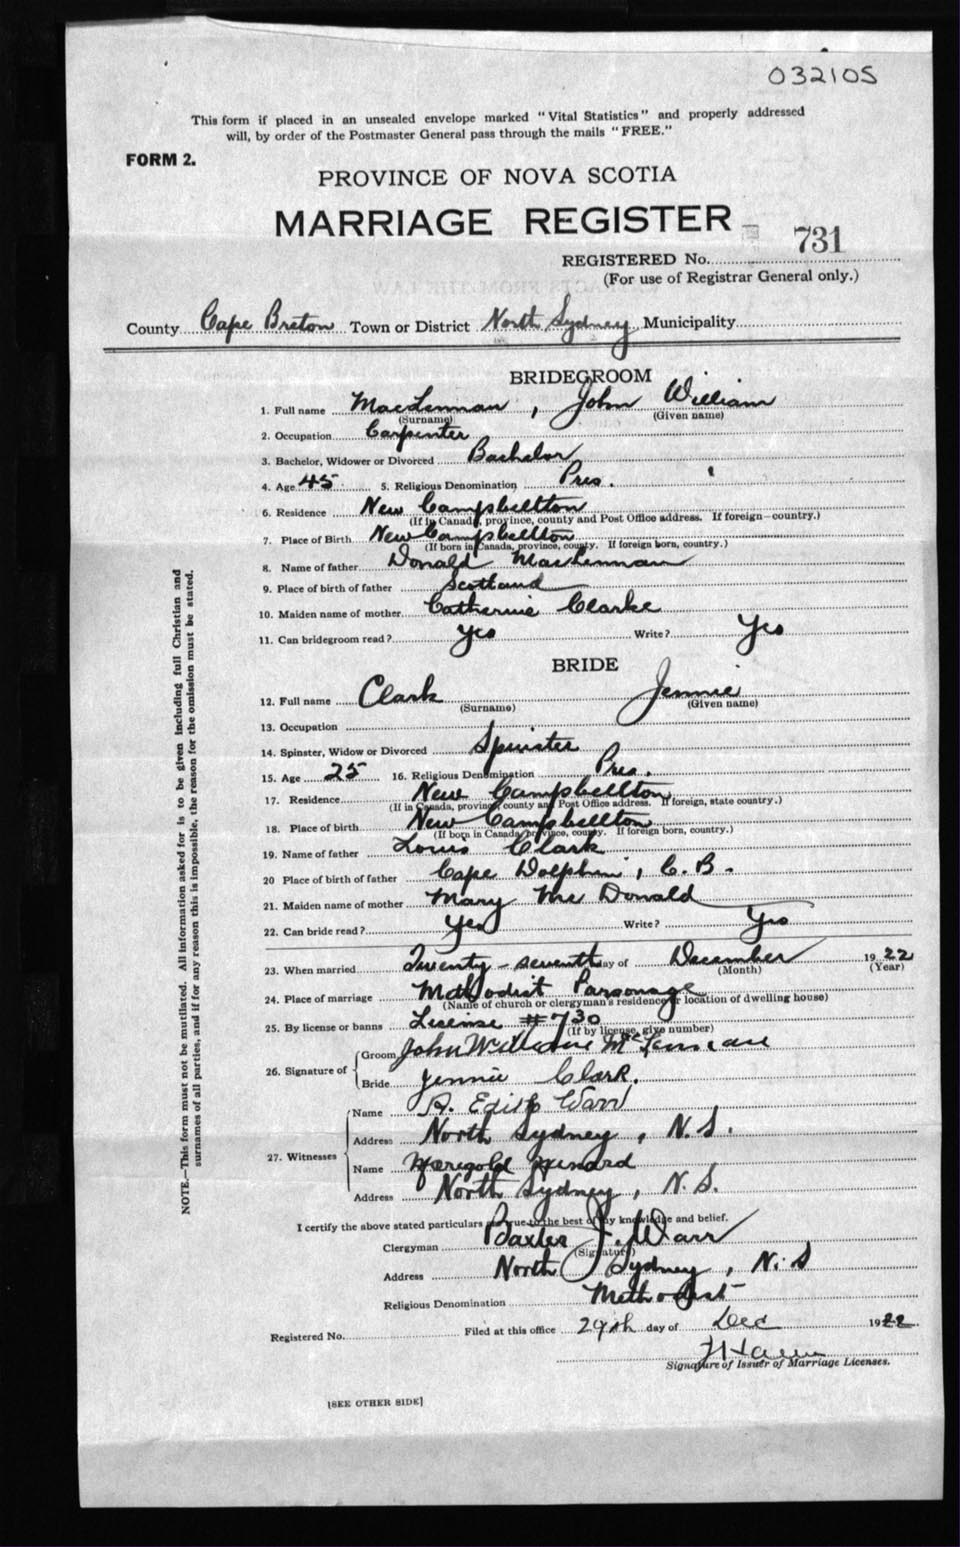 032105
This form if placed in an unsealed envelope marked "Vital Statistics" and properly addressed
will, by order of the Postmaster General pass through the mails "FREE."
FORM 2.
PROVINCE OF NOVA SCOTIA
MARRIAGE REGISTER
731
REGISTERED No.
(For use of Registrar General only.)
County Cape Breton Town or District North Sydney Municipality
BRIDEGROOM
1. Full name MacLennan, John William
(Surname) (Given name)
2. Occupation Carpenter
3. Bachelor, Widower or Divorced Bachelor
4. Age 45 5. Religious Denomination Pres.
6. Residence New Campbellton
(If in Canada, province, county and Post Office address. If foreign—country.)
7. Place of Birth New Campbellton
(If born in Canada, province, county. If foreign born, country.)
8. Name of father Donald MacLennan
9. Place of birth of father Scotland
10. Maiden name of mother Catherine Clarke
11. Can bridegroom read? Yes Write? Yes
BRIDE
12. Full name Clark Jennie
(Surname) (Given name)
13. Occupation
14. Spinster, Widow or Divorced Spinster
15. Age 25 16. Religious Denomination Pres.
17. Residence New Campbellton
(If in Canada, province, county and Post Office address. If foreign, state country.)
18. Place of birth New Campbellton
(If born in Canada, province, county. If foreign born, country.)
19. Name of father Louis Clark
20 Place of birth of father Cape Dolphin, C. B.
21. Maiden name of mother Mary Mc Donald
22. Can bride read? Yes Write? Yes
23. When married Twenty-seventh day of December 1922
(Month) (Year)
24. Place of marriage Methodist Parsonage
(Name of church or clergyman's residence or location of dwelling house)
25. By license or banns License #730
(If by license, give number)
26. Signature of
Groom John William McLennan
Bride Jennie Clark.
27. Witnesses
Name A. Edith Warr
Address North Sydney, N.S.
Name Marigold
Address North Sydney, N.S.
I certify the above stated particulars are true to the best of my knowledge and belief.
Clergyman Baxter J. Warr
(Signature)
Address North Sydney, N.S
Religious Denomination Methodist
Registered No. Filed at this office 29th day of Dec 1922
Signature of Issuer of Marriage Licenses.
[SEE OTHER SIDE]
NOTE.—This form must not be mutilated. All information asked for is to be given including full Christian and
surnames of all parties, and if for any reason this is impossible, the reason for the omission must be stated.